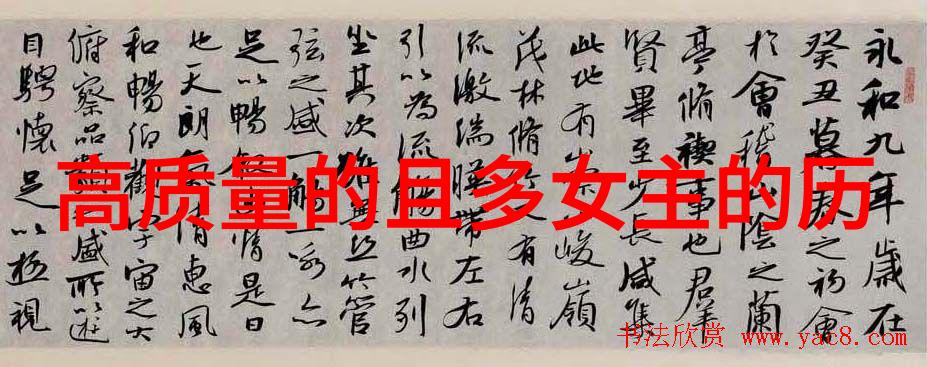 永和九年歲在
癸丑暮春之初會
於會稽山陰之蘭
亭脩禊事也羣
賢畢至少長咸集
此地有崇山峻嶺
茂林脩竹又有清
流激湍暎帶左右
引以為流觴曲水列
坐其次雖無絲竹管
弦之盛一觴一詠亦
足以暢敘幽情是日
也天朗氣清惠風
和暢仰觀宇宙之大
俯察品類之盛所以遊
目騁懷足以極視
高质量的且多女主的历
书法欣赏 www.yac8.com